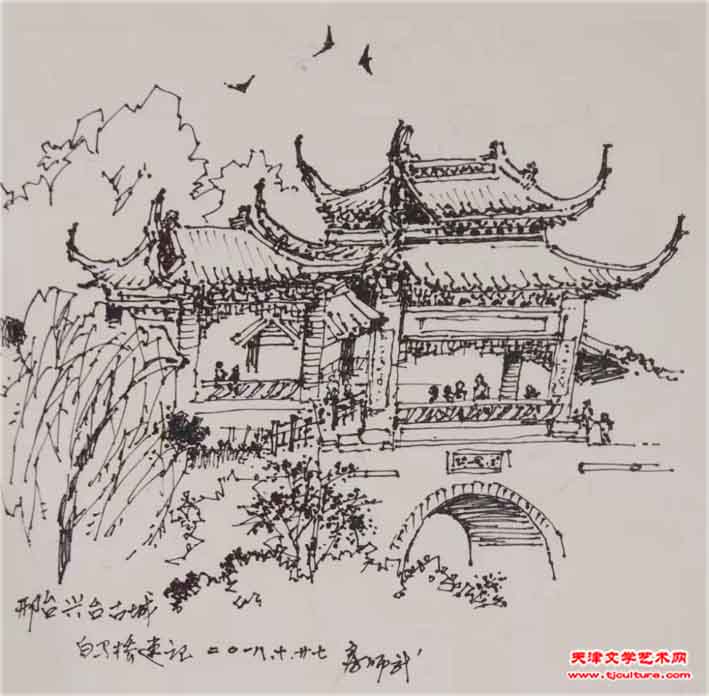 邢台兴台古城
白马桥速记 二〇一八.十.廿七 彦师武
天津文学艺术网
www.tjculture.com